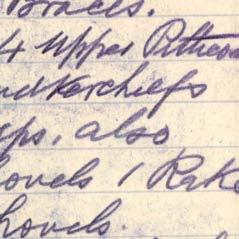 Braces.
4 upper Pillowc
ndkerchiefs
ps, also
hovels 1 Rake
hovels.